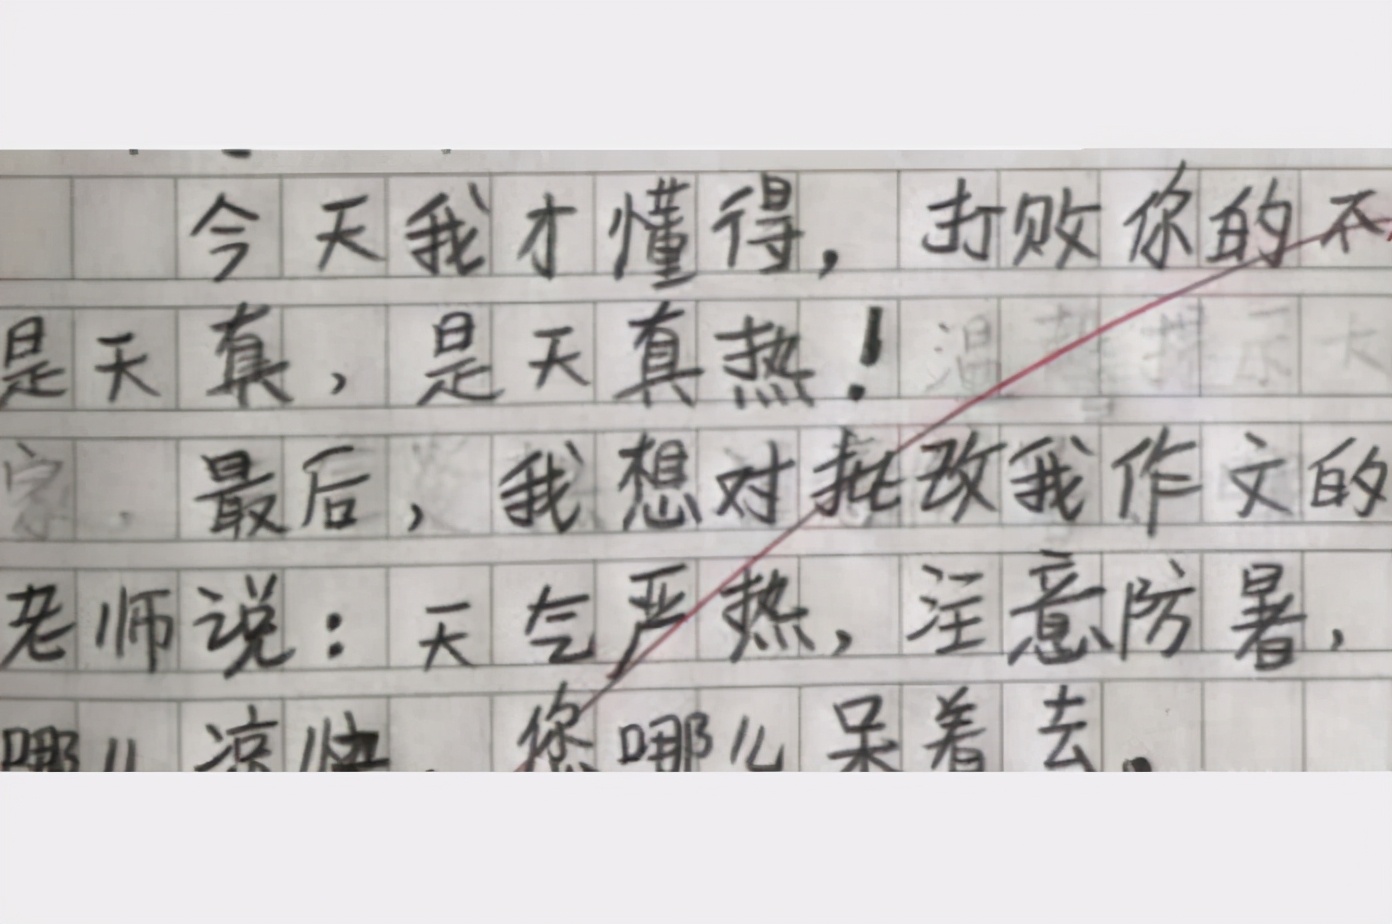 今天我才懂得，打败你的不
是天真，是天真热！温馨提示大
家．最后，我想对批改我作文的
老师说：天气严热，注意防暑，
哪儿凉快，您哪儿呆着去．